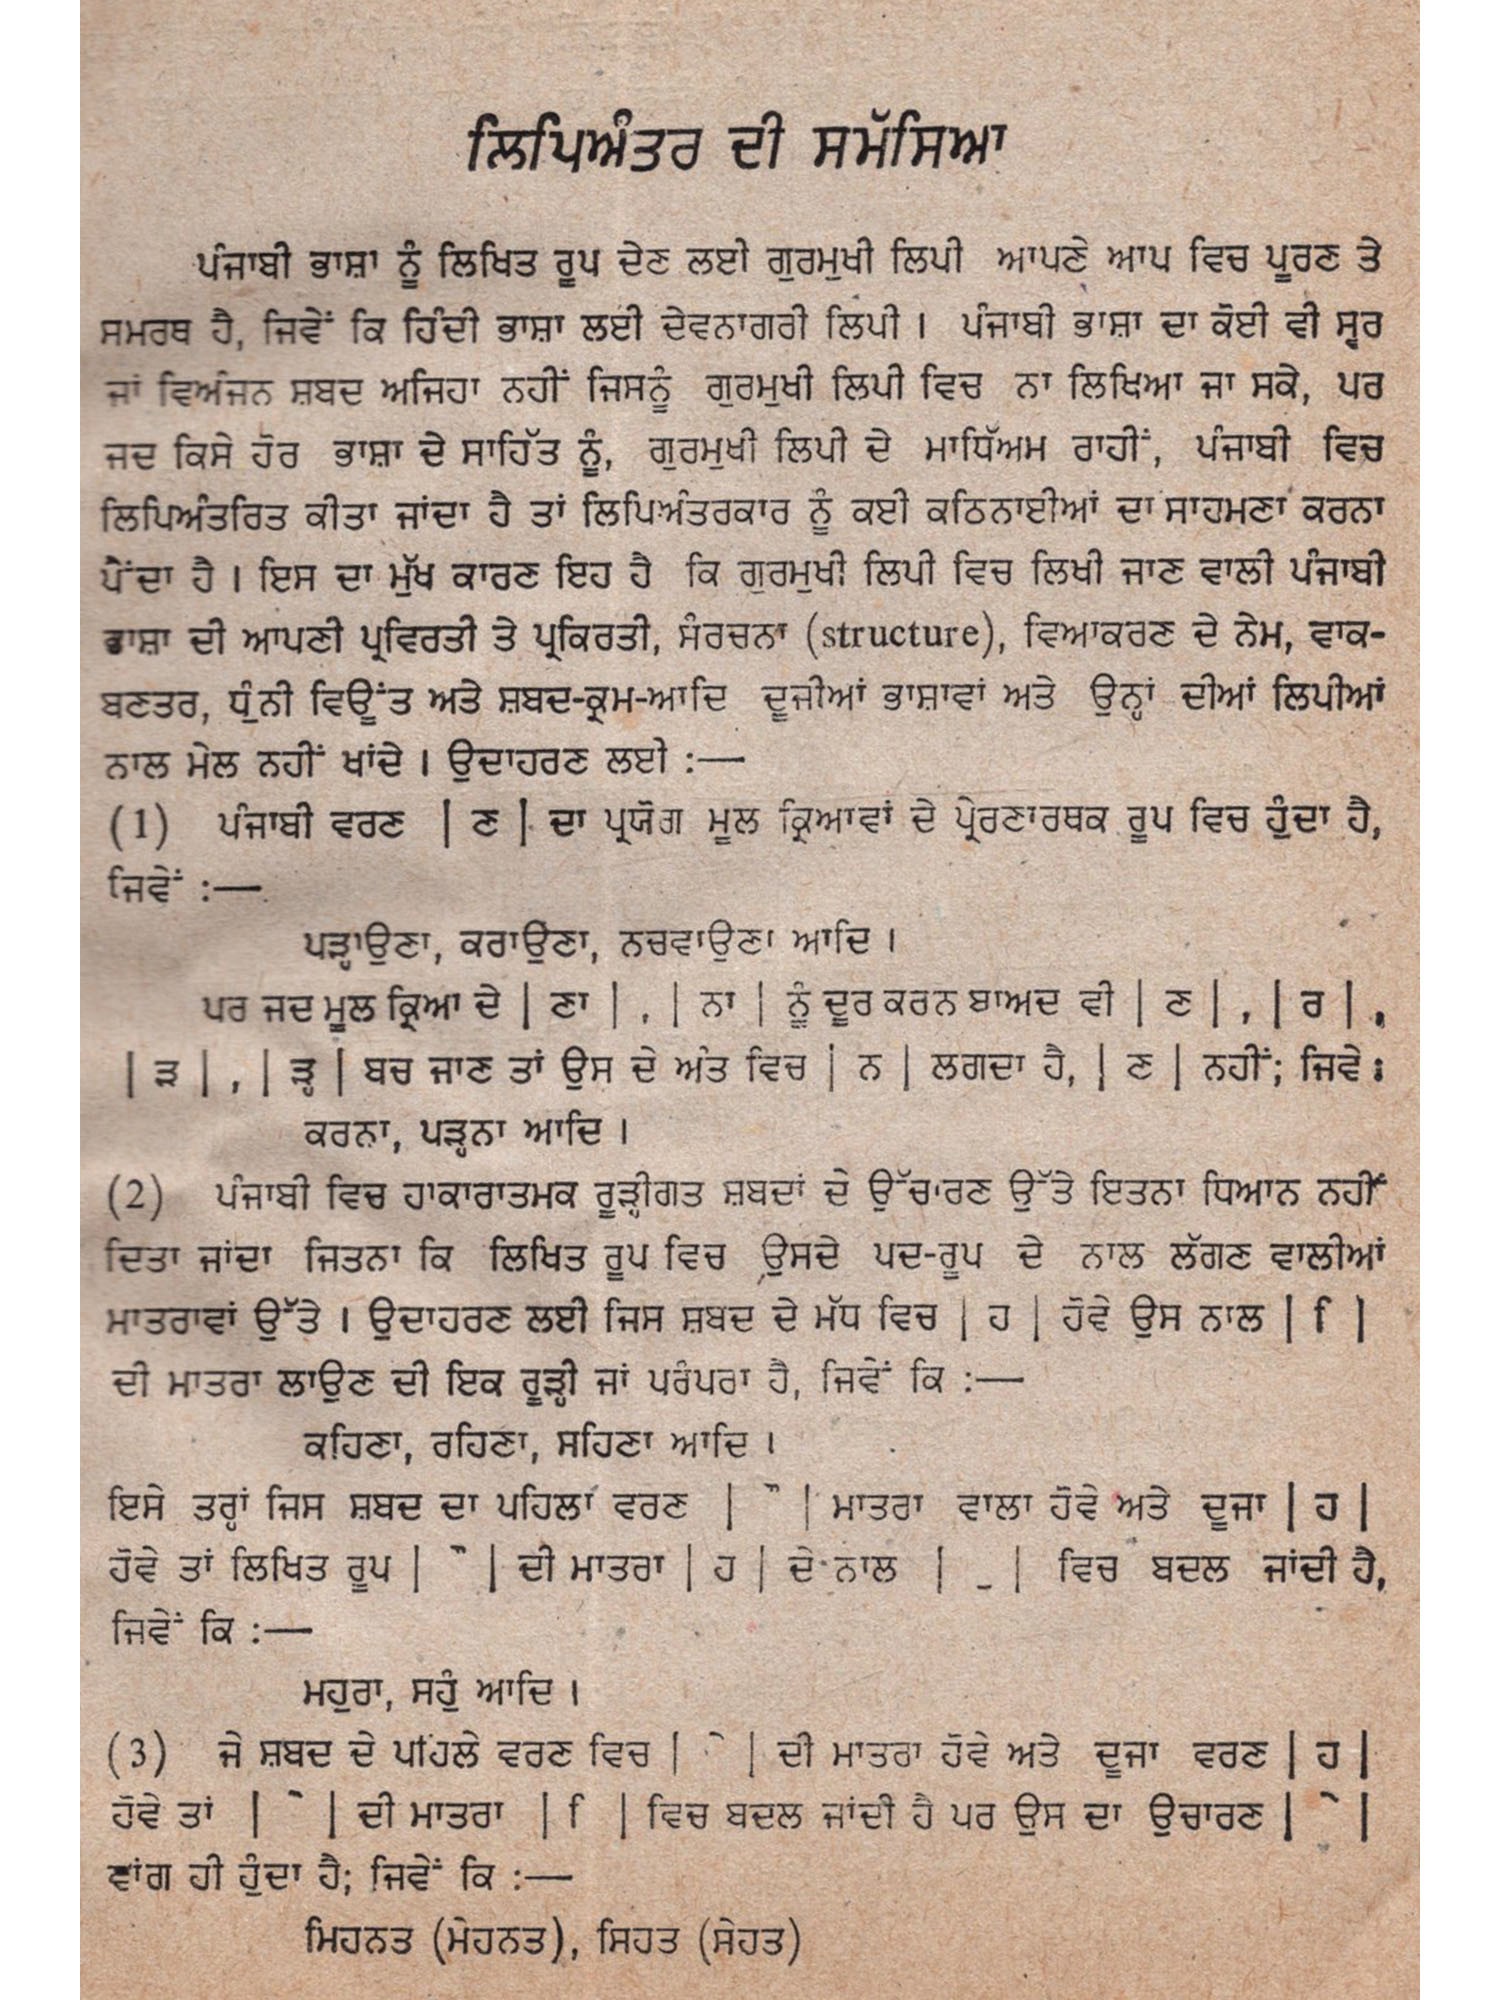 ਲਿਪਿਅੰਤਰ ਦੀ ਸਮੱਸਿਆ
ਪੰਜਾਬੀ ਭਾਸ਼ਾ ਨੂੰ ਲਿਖਿਤ ਰੂਪ ਦੇਣ ਲਈ ਗੁਰਮੁਖੀ ਲਿਪੀ ਆਪਣੇ ਆਪ ਵਿਚ ਪੂਰਣ ਤੇ
ਸਮਰਥ ਹੈ, ਜਿਵੇਂ ਕਿ ਹਿੰਦੀ ਭਾਸ਼ਾ ਲਈ ਦੇਵਨਾਗਰੀ ਲਿਪੀ । ਪੰਜਾਬੀ ਭਾਸ਼ਾ ਦਾ ਕੋਈ ਵੀ ਸ੍ਵਰ
ਜਾਂ ਵਿਅੰਜਨ ਸ਼ਬਦ ਅਜਿਹਾ ਨਹੀਂ ਜਿਸਨੂੰ ਗੁਰਮੁਖੀ ਲਿਪੀ ਵਿਚ ਨਾ ਲਿਖਿਆ ਜਾ ਸਕੇ, ਪਰ
ਜਦ ਕਿਸੇ ਹੋਰ ਭਾਸ਼ਾ ਦੇ ਸਾਹਿੱਤ ਨੂੰ, ਗੁਰਮੁਖੀ ਲਿਪੀ ਦੇ ਮਾਧਿੱਅਮ ਰਾਹੀਂ, ਪੰਜਾਬੀ ਵਿਚ
ਲਿਪਿਅੰਤਰਿਤ ਕੀਤਾ ਜਾਂਦਾ ਹੈ ਤਾਂ ਲਿਪਿਅੰਤਰਕਾਰ ਨੂੰ ਕਈ ਕਠਿਨਾਈਆਂ ਦਾ ਸਾਹਮਣਾ ਕਰਨਾ
ਪੈਂਦਾ ਹੈ । ਇਸ ਦਾ ਮੁੱਖ ਕਾਰਣ ਇਹ ਹੈ ਕਿ ਗੁਰਮੁਖੀ ਲਿਪੀ ਵਿਚ ਲਿਖੀ ਜਾਣ ਵਾਲੀ ਪੰਜਾਬੀ
ਭਾਸ਼ਾ ਦੀ ਆਪਣੀ ਪ੍ਰਵਿਰਤੀ ਤੇ ਪ੍ਰਕਿਰਤੀ, ਸੰਰਚਨਾ (structure), ਵਿਆਕਰਣ ਦੇ ਨੇਮ, ਵਾਕ-
ਬਣਤਰ, ਧੁੰਨੀ ਵਿਉਂਤ ਅਤੇ ਸ਼ਬਦ-ਕ੍ਰਮ-ਆਦਿ ਦੂਜੀਆਂ ਭਾਸ਼ਾਵਾਂ ਅਤੇ ਉਨ੍ਹਾਂ ਦੀਆਂ ਲਿਪੀਆਂ
ਨਾਲ ਮੇਲ ਨਹੀਂ ਖਾਂਦੇ । ਉਦਾਹਰਣ ਲਈ :—
(1) ਪੰਜਾਬੀ ਵਰਣ | ਣ | ਦਾ ਪ੍ਰਯੋਗ ਮੂਲ ਕ੍ਰਿਆਵਾਂ ਦੇ ਪ੍ਰੇਰਣਾਰਥਕ ਰੂਪ ਵਿਚ ਹੁੰਦਾ ਹੈ,
ਜਿਵੇਂ :—
ਪੜ੍ਹਾਉਣਾ, ਕਰਾਉਣਾ, ਨਚਵਾਉਣਾ ਆਦਿ ।
ਪਰ ਜਦ ਮੂਲ ਕ੍ਰਿਆ ਦੇ | ਣਾ | , | ਨਾ | ਨੂੰ ਦੂਰ ਕਰਨ ਬਾਅਦ ਵੀ | ਣ | , | ਰ | ,
| ੜ | , | ੜ੍ਹ | ਬਚ ਜਾਣ ਤਾਂ ਉਸ ਦੇ ਅੰਤ ਵਿਚ | ਨ | ਲਗਦਾ ਹੈ, | ਣ | ਨਹੀਂ; ਜਿਵੇ :
ਕਰਨਾ, ਪੜ੍ਹਨਾ ਆਦਿ ।
(2) ਪੰਜਾਬੀ ਵਿਚ ਹਾਕਾਰਾਤਮਕ ਰੂੜ੍ਹੀਗਤ ਸ਼ਬਦਾਂ ਦੇ ਉੱਚਾਰਣ ਉੱਤੇ ਇਤਨਾ ਧਿਆਨ ਨਹੀਂ
ਦਿਤਾ ਜਾਂਦਾ ਜਿਤਨਾ ਕਿ ਲਿਖਿਤ ਰੂਪ ਵਿਚ ਉਸਦੇ ਪਦ-ਰੂਪ ਦੇ ਨਾਲ ਲੱਗਣ ਵਾਲੀਆਂ
ਮਾਤਰਾਵਾਂ ਉੱਤੇ । ਉਦਾਹਰਣ ਲਈ ਜਿਸ ਸ਼ਬਦ ਦੇ ਮੱਧ ਵਿਚ | ਹ | ਹੋਵੇ ਉਸ ਨਾਲ | ਿ |
ਦੀ ਮਾਤਰਾ ਲਾਉਣ ਦੀ ਇਕ ਰੂੜ੍ਹੀ ਜਾਂ ਪਰੰਪਰਾ ਹੈ, ਜਿਵੇਂ ਕਿ :—
ਕਹਿਣਾ, ਰਹਿਣਾ, ਸਹਿਣਾ ਆਦਿ ।
ਇਸੇ ਤਰ੍ਹਾਂ ਜਿਸ ਸ਼ਬਦ ਦਾ ਪਹਿਲਾ ਵਰਣ | ੌ | ਮਾਤਰਾ ਵਾਲਾ ਹੋਵੇ ਅਤੇ ਦੂਜਾ | ਹ |
ਹੋਵੇ ਤਾਂ ਲਿਖਿਤ ਰੂਪ | ੌ | ਦੀ ਮਾਤਰਾ | ਹ | ਦੇ ਨਾਲ | ੁ | ਵਿਚ ਬਦਲ ਜਾਂਦੀ ਹੈ,
ਜਿਵੇਂ ਕਿ :—
ਮਹੁਰਾ, ਸਹੁੰ ਆਦਿ ।
(3) ਜੇ ਸ਼ਬਦ ਦੇ ਪਹਿਲੇ ਵਰਣ ਵਿਚ | ੇ | ਦੀ ਮਾਤਰਾ ਹੋਵੇ ਅਤੇ ਦੂਜਾ ਵਰਣ | ਹ |
ਹੋਵੇ ਤਾਂ | ੇ | ਦੀ ਮਾਤਰਾ | ਿ | ਵਿਚ ਬਦਲ ਜਾਂਦੀ ਹੈ ਪਰ ਉਸ ਦਾ ਉਚਾਰਣ | ੇ |
ਵਾਂਗ ਹੀ ਹੁੰਦਾ ਹੈ; ਜਿਵੇਂ ਕਿ :—
ਮਿਹਨਤ (ਮੇਹਨਤ), ਸਿਹਤ (ਸੇਹਤ)